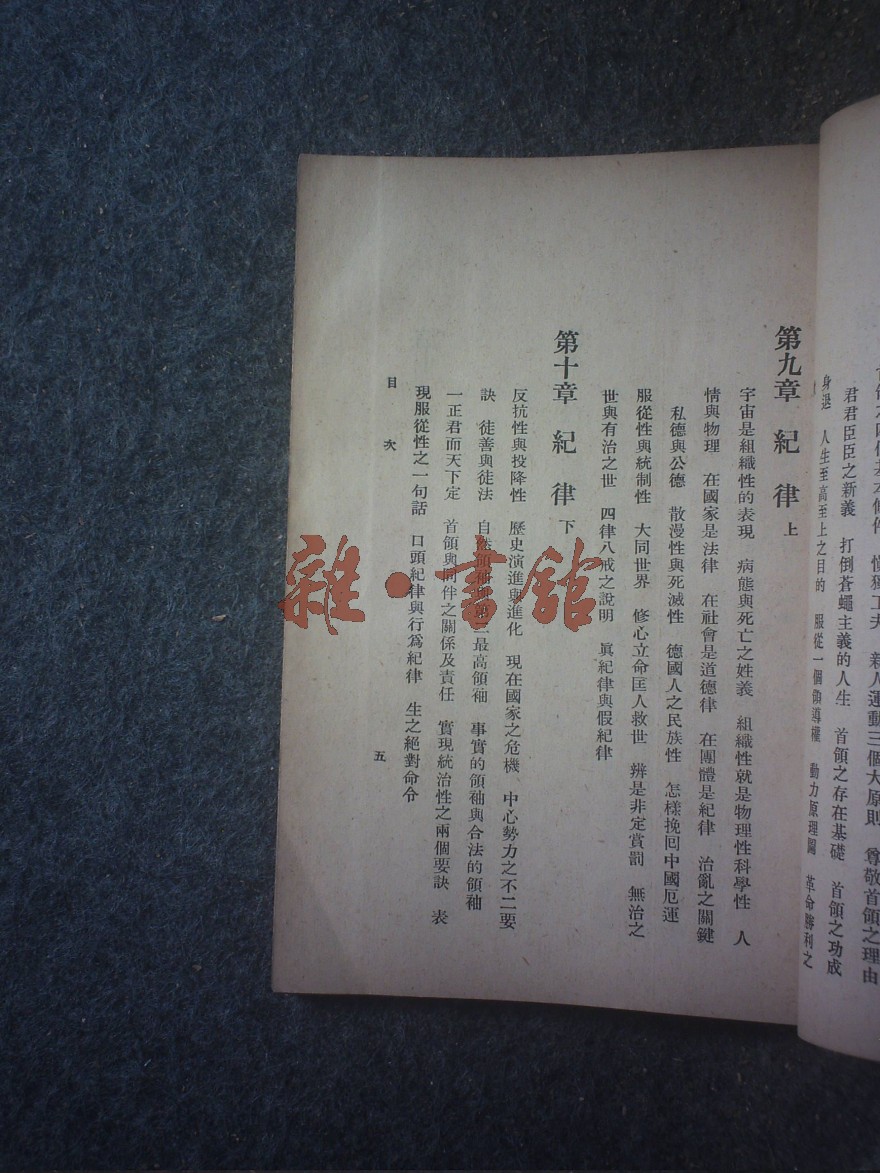 君君臣臣之新義　打倒蒼蠅主義的人生　首領之存在基礎　首領之功成
身退　人生至高至上之目的　服從一個領導權　動力原理圖　革命勝利之
第九章　紀　律　上
宇宙是組織性的表現　病態與死亡之姓義　組織性就是物理性科學性　人
情與物理　在國家是法律　在社會是道德律　在團體是紀律　治亂之關鍵
私德與公德　散漫性與死滅性　德國人之民族性　怎樣挽回中國厄運
服從性與統制性　大同世界　修心立命匡人救世　辨是非定賞罰　無治之
世與有治之世　四律八戒之說明　眞紀律與假紀律
第十章　紀　律　下
反抗性與投降性　歷史演進與進化　現在國家之危機　中心勢力之不二要
訣　徒善與徒法　自然領袖　最高領袖　事實的領袖與合法的領袖
一正君而天下定　首領與同伴之關係及責任　實現統治性之兩個要訣　表
現服從性之一句話　口頭紀律與行爲紀律　生之絕對命令
目　次
五
雜·書館